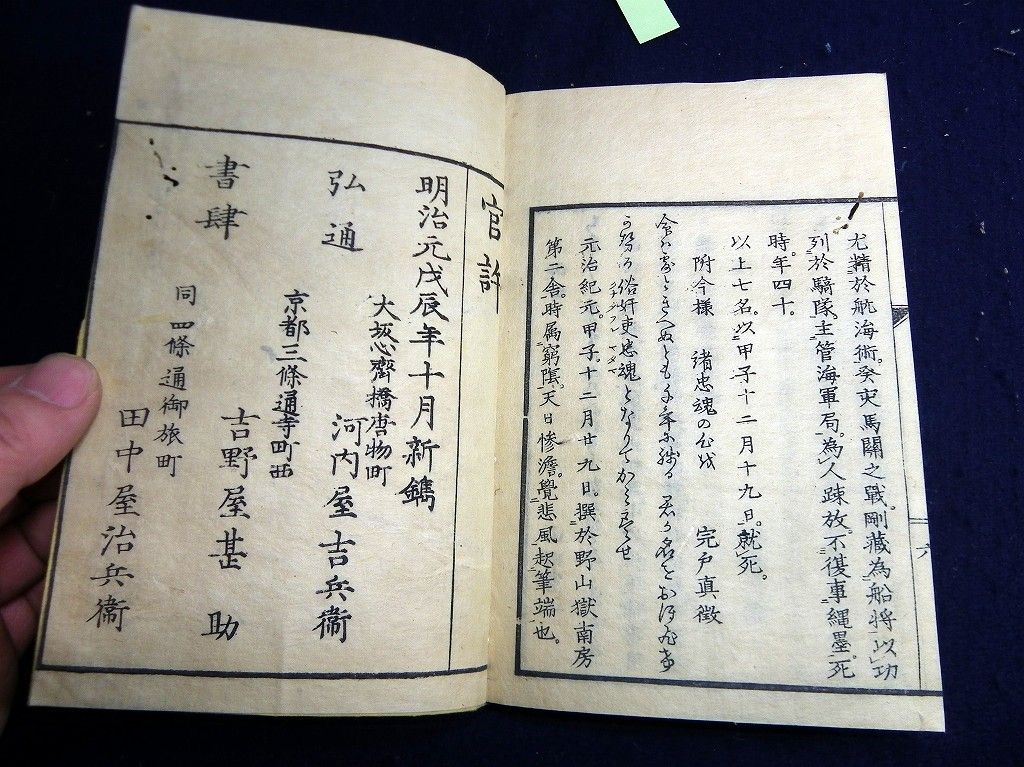 尤精於航海術。癸亥馬關之戰。剛藏為船将。以功
列於騎隊。主管海軍局。為人疎放。不復事縄墨。死
時。年四十。
以上七名。以甲子十二月十九日。就死。
附今様 諸忠魂の
宍戸真徴
俗奸吏忠魂となりて
元治紀元。甲子。十二月廿九日。撰於野山獄南房
第二舎。時属窮陰。天日惨澹。覺悲風起筆端也。
六
官許
明治元戊辰年十月新鐫
弘通
書肆
大坂心齋橋唐物町
河内屋吉兵衞
京都三條通寺町西
吉野屋甚助
同四條通御旅町
田中屋治兵衞